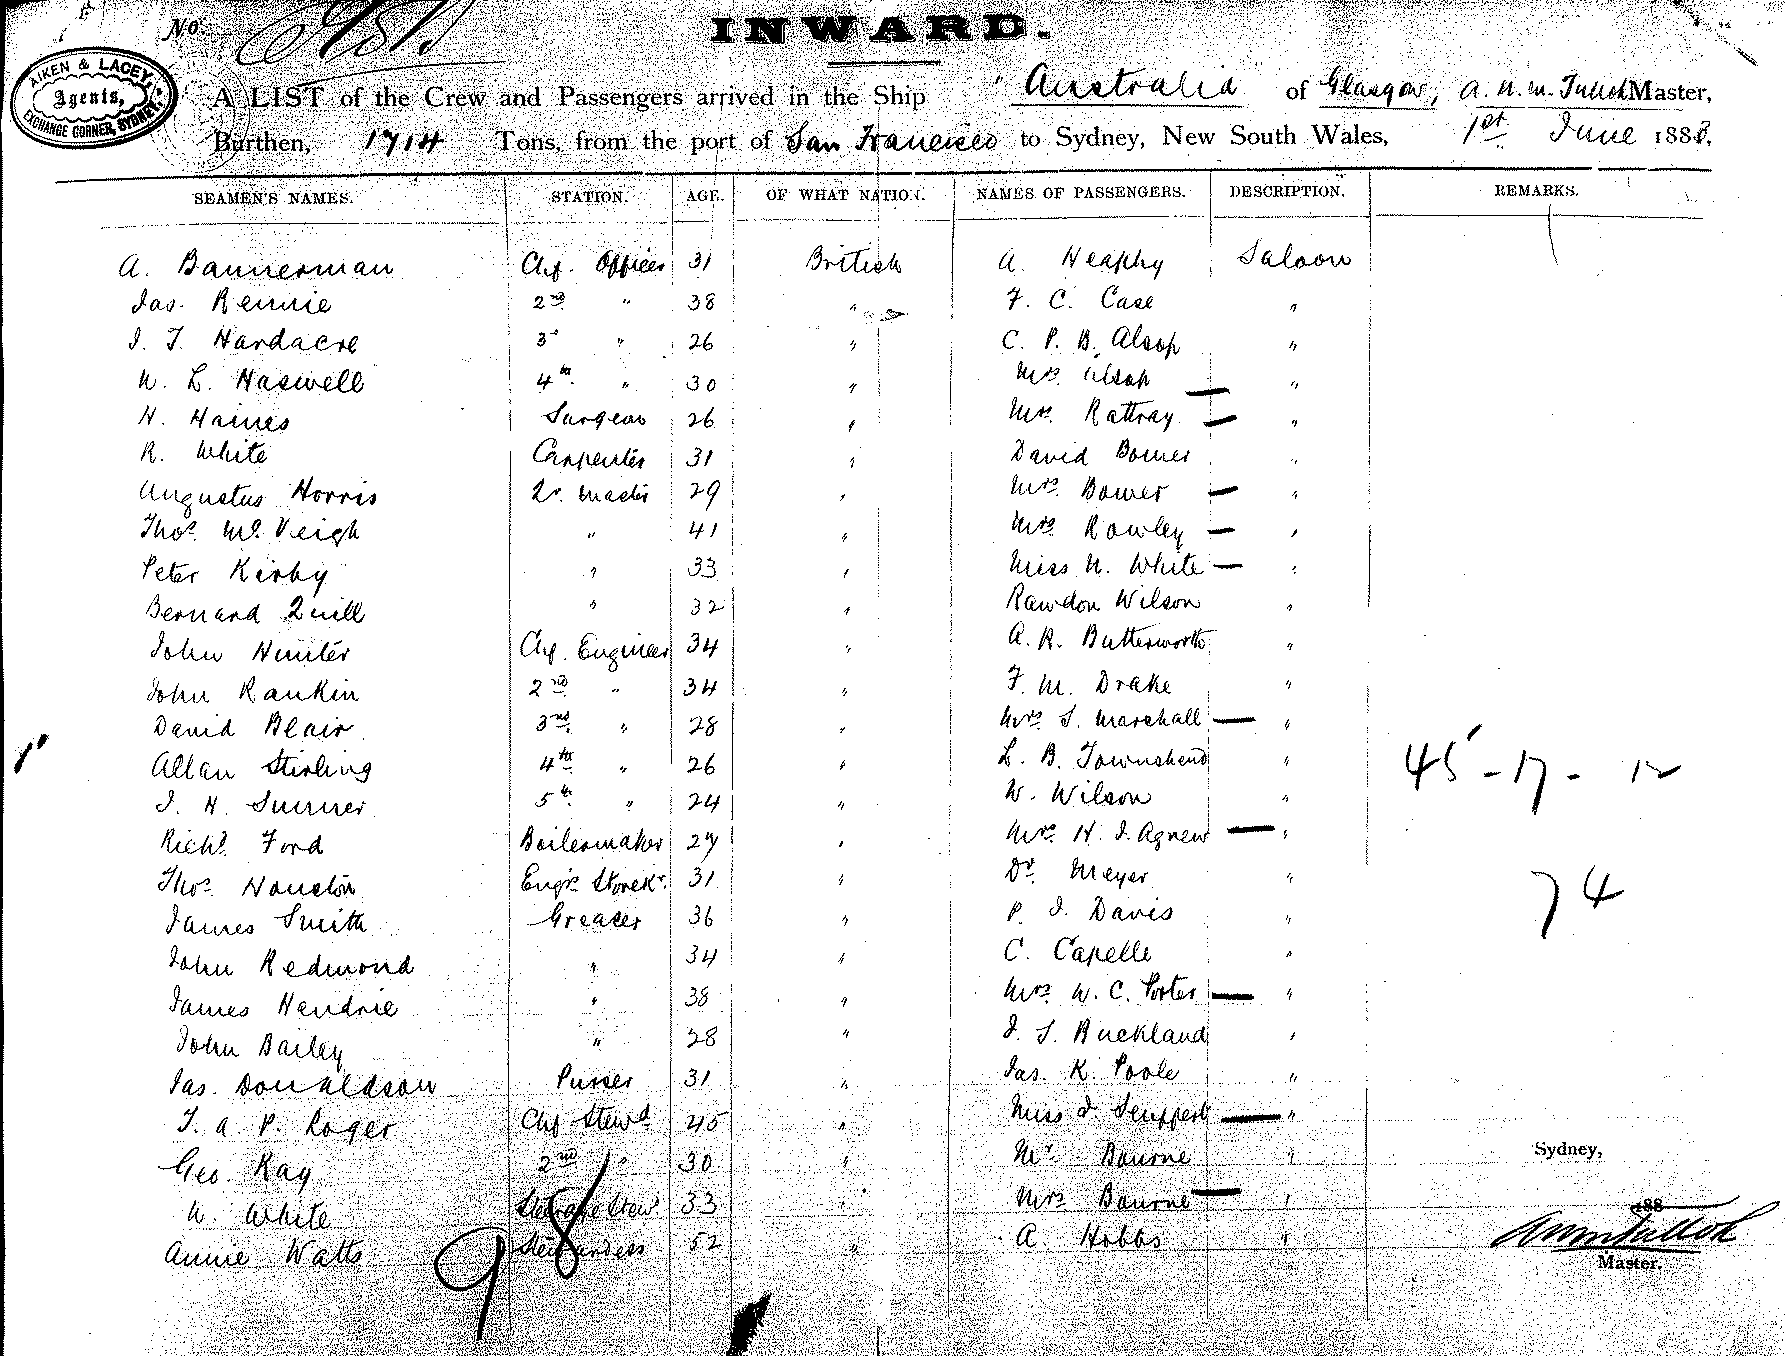 No.
INWARD.
AIKEN & LACEY,
Agents,
EXCHANGE CORNER, SYDNEY.
A LIST of the Crew and Passengers arrived in the Ship Australia of Glasgow, Master,
Burthen, 1714 Tons, from the port of San Francisco to Sydney, New South Wales, 1st June 1883.
SEAMEN'S NAMES. STATION. AGE. OF WHAT NATION. NAMES OF PASSENGERS. DESCRIPTION. REMARKS.
A. Bannerman Chf. Officer 31 British A Heaphy Saloon
Jas. Rennie 2nd " 38 " F. C. Case "
J. T. Hardacre 3d " 26 " C. P. B. Alsop "
W. L. Haswell 4th " 30 " Mrs Alsop "
H. Haines Surgeon 26 " Mrs Rattray "
R. White Carpenter 31 " David Bower "
Augustus Norris Qr. Master 29 " Mrs Bower "
Thos. McVeigh " 41 " Mrs Rowley "
Peter Kirby " 33 " Miss N. White "
Bernard Quill " 32 " Rawdon Wilson "
John Hunter Chf. Engineer 34 " A. R. Butterworth "
John Rankin 2nd " 34 " F. M. Drake "
David Blair 3rd " 28 " Mrs S. Marshall "
Allan Stirling 4th " 26 " L. B. Townshend "
J. H. Sumner 5th " 24 " W. Wilson "
Richd. Ford Boilermaker 27 " Mrs H. J. Agnew "
Thos. Houston Engrs. Storekr. 31 " Dr. Meyer "
James Smith Greaser 36 " P. J. Davis "
John Redmond " 34 " C. Capelle "
James Hendrie " 38 " Mrs W. C. Porter "
John Bailey " 28 " J. S. Buckland "
Jas. Donaldson Purser 31 " Jas. K. Poole "
T. A. P. Roger Chf Stewd 45 " Miss J. "
Geo. Kay 2nd " 30 " Mr. Bourne "
W. White Steerage Stewd 33 " Mrs Bourne "
Annie Watts Stewardess 52 " A. Hobbs "
45-17-12
74
98
Sydney,
188
Master.